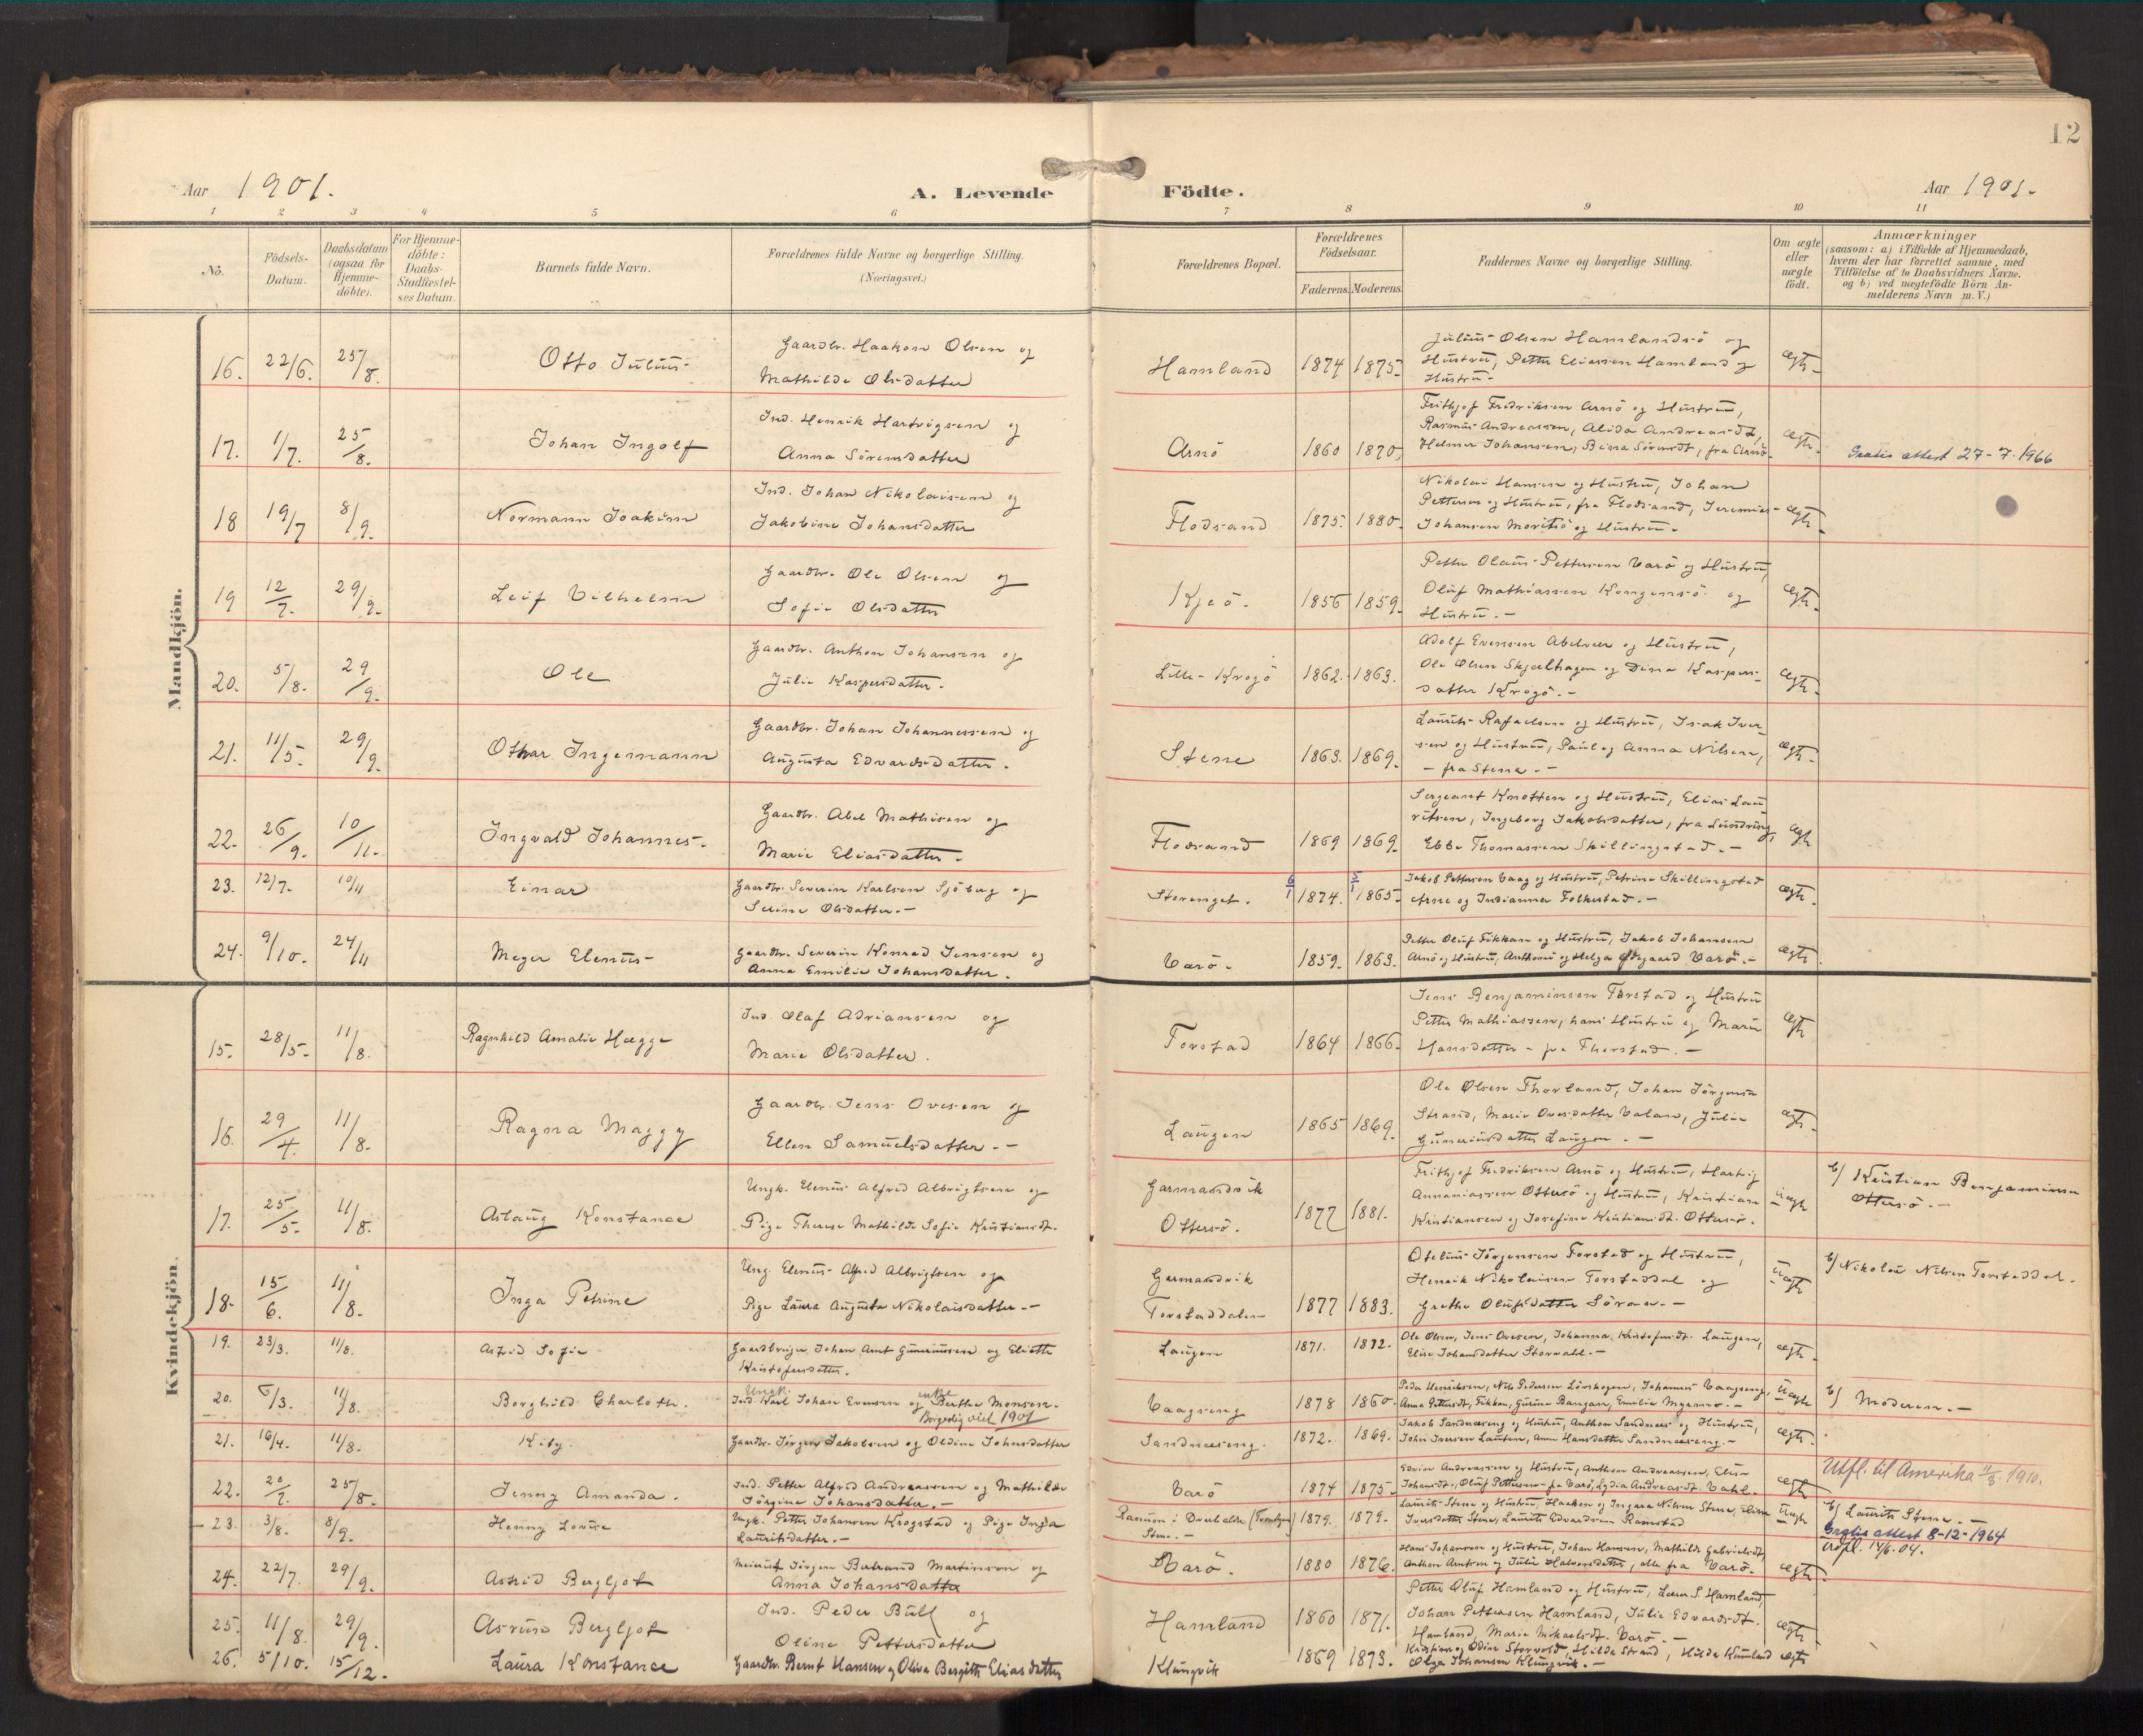 12
Aar 1901.
A. Levende Födte.
Aar 1901.
1 2 3 4 5 6 7 8 9 10 11
No.
Födsels-
Datum.
Daabsdatum
(ogsaa for
Hjemme-
döbte).
For Hjemme-
döbte:
Daabs-
Stadfæstel-
ses Datum.
Barnets fulde Navn.
Forældrenes fulde Navne og borgerlige Stilling.
(Næringsvei.)
Forældrenes Bopæl.
Forældrenes
Födselsaar.
Faderens. Moderens.
Faddernes Navne og borgerlige Stilling.
Om ægte
eller
uægte
födt.
Anmærkninger
(saasom: a) i Tilfælde af Hjemmedaab,
hvem der har forrettet samme, med
Tilföielse af to Daabsvidners Navne.
og b) ved uægtefödte Börn An-
melderens Navn m. V.)
Mandkjön.
16. 22/6. 25/8. Otto Julius
Gaardbr. Haakon Olsen og
Mathilde Olsdatter
Hamland 1874 1875.
Julius Olsen Hamlandsö og
Hustru, Petter Eliassen Hamland og
Hustru
ægte
17. 1/7. 25/8. Johan Ingolf
Ind. Henrik Hartvigsen og
Anna Sörensdatter
Arnö 1860 1870,
Frithjof Fredriksen Arnö og Hustru,
Rasmus Andreassen, Alida Andreasdt,
Helmer Johansen, Bina Sörensdt, fra Arnö
ægte
Gratis attest 27-7-1966
18 19/7 8/9. Normann Joakim
Ind. Johan Nikolaisen og
Jakobine Johansdatter
Flodsand 1875. 1880.
Nikolai Hansen og Hustru, Johan
Pettersen og Hustru, fra Flodsand, Jeremias
Johansen og Hustru
ægte
19 12/7. 29/9. Leif Vilhelm
Gaardbr. Ole Olsen og
Sofie Olsdatter
Kjeö. 1856 1859.
Petter Olaus Pettersen Varö og Hustru,
Oluf Mathiassen Kongensö og
Hustru.
ægte
20. 5/8. 29/9. Ole
Gaardbr. Anthon Johansen og
Julie Kaspersdatter.
Lille-Krogö 1862. 1863.
Adolf Evensen Abelvær og Hustru,
Ole Olsen Skjælhagen og Dina Kaspers-
datter Krogö.
ægte
21. 11/5. 29/9. Othar Ingemann
Gaardbr. Johan Johannessen og
Augusta Edvardsdatter.
Stene 1863. 1869.
Laurits Rafaelsen og Hustru, Isak Iver-
sen og Hustru, Paul og Anna Nilsen,
fra Stene.
ægte
22. 26/9. 10/11. Ingvald Johannes.
Gaardbr. Abel Mathisen og
Marie Eliasdatter.
Flodsand 1869 1869.
Sergeant Knotten og Hustru, Elias Lau
ritsen, Ingeborg Jakobsdatter, fra
Ebbe Thomassen Skillingstad.
ægte
23. 12/7. 10/11 Einar
Gaardbr. Severin Karlsen Sjöberg og
Serine Olsdatter.
Storenget. 1874. 1865
Jakob Pettersen Vaag og Hustru, Petrine Skillingstad
Arne og Indianna Folkestad.
ægte.
24. 9/10. 24/11 Meyer Elenus
Gaardbr. Severin Konrad Jensen og
Anna Emilie Johansdatter.
Varö. 1859. 1863.
Petter Oluf Fikkan og Hustru, Jakob Johansen
Arnö og Hustru, Anthoni og Helga Ödegaard Varö.
ægte
Kvindekjön.
15. 28/5. 11/8. Ragnhild Amalie Hegge
Ind. Olaf Adriansen og
Marie Olsdatter.
Forstad 1864 1866.
Jens Benjaminsen Forstad og Hustru
Petter Mathiassen, hans Hustru og Marie
Hansdatter fra Thorstad.
ægte
16. 29/4. 11/8. Ragna Maggy
Gaardbr. Jens Ovesen og
Ellen Samuelsdatter.
Laugen 1865 1869.
Ole Olsen Thorland, Johan Jörgensen
Strand, Marie Ovesdatter Valan, Julie
Guneriusdatter Laugen.
ægte
17. 25/5. 11/8. Aslaug Konstance
Ungk. Elenus Alfred Albrigtsen og
Pige Therese Mathilde Sofie Kristiansdt.
Garmandvik
Ottersö. 1877 1881.
Frithjof Fredriksen Arnö og Hustru, Hartvig
Annaniassen Ottersö og Hustru, Kristian
Kristiansen og Josefine Kristiansdt. Ottersö.
uægte
b/ Kristian Benjaminsen
Ottersö.
18. 15/6. 11/8. Inga Petrine
Ung. Elenus Alfred Albrigtsen og
Pige Laura Augusta Nikolaisdatter.
Garmandvik
Forstaddalen 1877 1883.
Otelius Jörgensen Forstad og Hustru,
Henrik Nikolaisen Forstaddal og
Grethe Olufsdatter Söraa.
uægte
b/ Nikolai Nilsen Forstaddal.
19. 23/3. 11/8. Astrid Sofie
Gaardbruger Johan Arnt Guneriussen og Elisette
Kristofersdatter.
Laugen 1871. 1872.
Ole Olsen, Jens Ovesen, Johanna Kristofersdt. Laugen,
Elise Johansdatter Storvahl.
ægte.
20. 6/3. 11/8. Borghild Charlotte.
Ungk. enke
Ind. Karl Johan Evensen og Berthe Monsen.
Borgerlig viet 1901
Vaagseng 1878 1860.
Peda Henriksen, Nils Pedersen Lövhagen, Johannes Vaagseng,
Anna Pettersdt, Fikkan, Gurine Bangan, Emilie Myrmo.
uægte
b/ Moderen.
21. 16/4. 11/8. Kity
Gaardbr. Jörgen Jakobsen og Oldine Johnsdatter
Sandnæseng. 1872. 1869.
Jakob Sandnæseng og Hustru, Anthon Sandnæs og Hustru,
John Iversen Lauten, Anne Hansdatter Sandnæseng.
ægte.
22. 20/7. 25/8. Jenny Amanda.
Ind. Petter Alfred Andreassen og Mathilde
Jörgine Johansdatter.
Varö 1874 1875
Edvin Andreassen og Hustru, Anthon Andreassen, Elise
Johansdt, Oluf Pettersen fra Varö, Lydia Andreasdt. Vahl.
ægte
Utfl. til Amerika 11/8 1910.
23. 3/8. 8/9. Henny Lovise
Ungk. Petter Johansen Krogstad og Pige Inga
Lauritsdatter.
Ranum i Overhalla
Stene. 1879. 1879.
Laurits Stene og Hustru, Haakon og Ingara Nilsen Stene, Elise
Iversdatter Stene, Laurits Edvardsen Ramstad
uægte
b/ Laurits Stene.
Gratis attest 8-12-1964
utfl. 14/6. 04.
24. 22/7. 29/9. Astrid Bergljot
Jörgen Bertrand Martinsen og
Anna Johansdatter
Varö. 1880 1876.
Hans Johansen og Hustru, Johan Hansen, Mathilde Gabrielsdt,
Anthon Arntsen og Julie Halvorsdatter, alle fra Varö.
ægte
25. 11/8. 29/9. Asrun Bergljot
Ind. Peder Bull og
Oline Pettersdatter
Hamland 1860 1871.
Petter Oluf Hamland og Hustru, S. Hamland,
Johan Pettersen Hamland, Julie Edvardsdt.
Hamland, Marie Mikaelsdt. Varö.
ægte
26. 5/10. 15/12. Laura Konstance
Gaardbr. Bernt Hansen og Oliva Bergitte Eliasdatter
Klungvik 1869 1873.
Kristian og Odine Storvold, Hilda Strand, Hilda
Olga Johansen Klungvik.
ægte